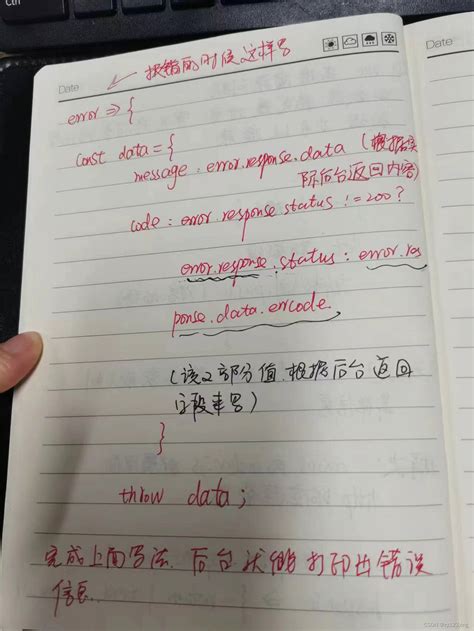 Ctrl
Date
Date
报错的时候这样写
error => {
const data = {
message : error.response.data (根据实
际后台返回内容)
code : error.response.status != 200 ?
error.response.status : error.res
ponse.data.errcode
(这2部分值.根据后台返回
字段来写)
}
throw data;
完成上面写法.后台状态码打印出错误
信息.